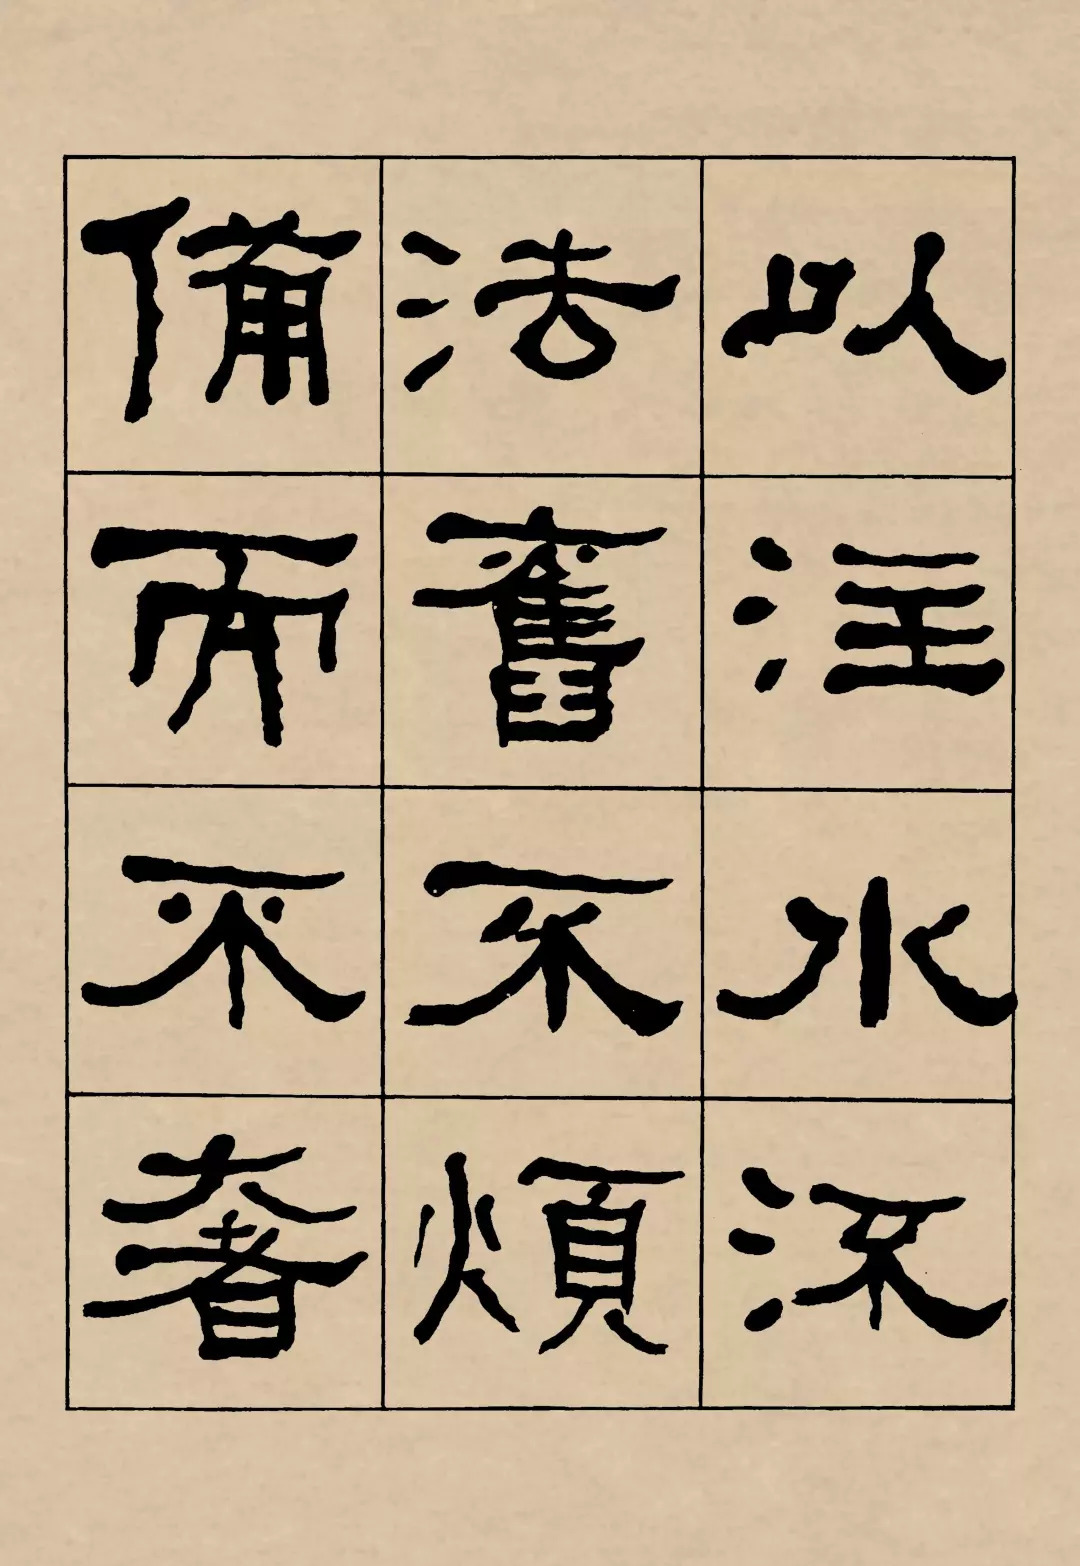 以注水流
法舊不煩
備而不奢